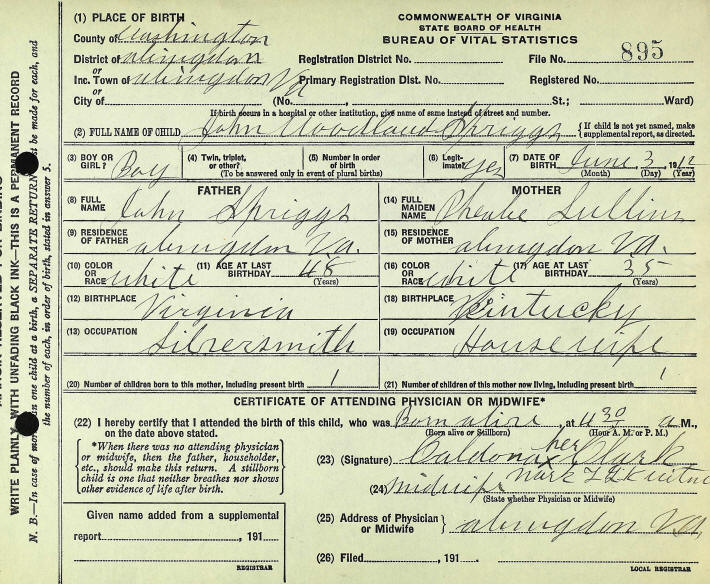 (1) PLACE OF BIRTH
County of Washington
District of abingdon
or
Inc. Town of abingdon Va
or
City of (No. , St.; Ward)
COMMONWEALTH OF VIRGINIA
STATE BOARD OF HEALTH
BUREAU OF VITAL STATISTICS
Registration District No. File No. 895
Primary Registration Dist. No. Registered No.
If birth occurs in a hospital or other institution, give name of same instead of street and number.
(2) FULL NAME OF CHILD John Woodland Spriggs { If child is not yet named, make supplemental report, as directed.
(3) BOY OR GIRL? Boy
(4) Twin, triplet, or other?
(5) Number in order of birth
(To be answered only in event of plural births)
(6) Legitimate? yes
(7) DATE OF BIRTH June 3, 1912
(Month) (Day) (Year)
FATHER
(8) FULL NAME John Spriggs
(9) RESIDENCE OF FATHER abingdon Va.
(10) COLOR OR RACE white (11) AGE AT LAST BIRTHDAY 48
(Years)
(12) BIRTHPLACE Virginia
(13) OCCUPATION Silversmith
MOTHER
(14) FULL MAIDEN NAME Pheabe Sullins
(15) RESIDENCE OF MOTHER abingdon Va.
(16) COLOR OR RACE white (17) AGE AT LAST BIRTHDAY 35
(Years)
(18) BIRTHPLACE Kintucky
(19) OCCUPATION Housewife
(20) Number of children born to this mother, including present birth 1
(21) Number of children of this mother now living, including present birth 1
CERTIFICATE OF ATTENDING PHYSICIAN OR MIDWIFE*
(22) I hereby certify that I attended the birth of this child, who was Born alive, at 4 30 a M.,
on the date above stated. (Born alive or Stillborn) (Hour A. M. or P. M.)
*When there was no attending physician
or midwife, then the father, householder,
etc., should make this return. A stillborn
child is one that neither breathes nor shows
other evidence of life after birth.
(23) (Signature) Caldona her x mark Clark
(24) Midwife
(State whether Physician or Midwife)
(25) Address of Physician or Midwife } abingdon Va.
(26) Filed , 191
LOCAL REGISTRAR
Given name added from a supplemental
report , 191
REGISTRAR
WRITE PLAINLY WITH UNFADING BLACK INK—THIS IS A PERMANENT RECORD
N. B.—In case of more than one child at a birth, a SEPARATE RETURN must be made for each, and
the number of each, in order of birth, stated in answer 5.